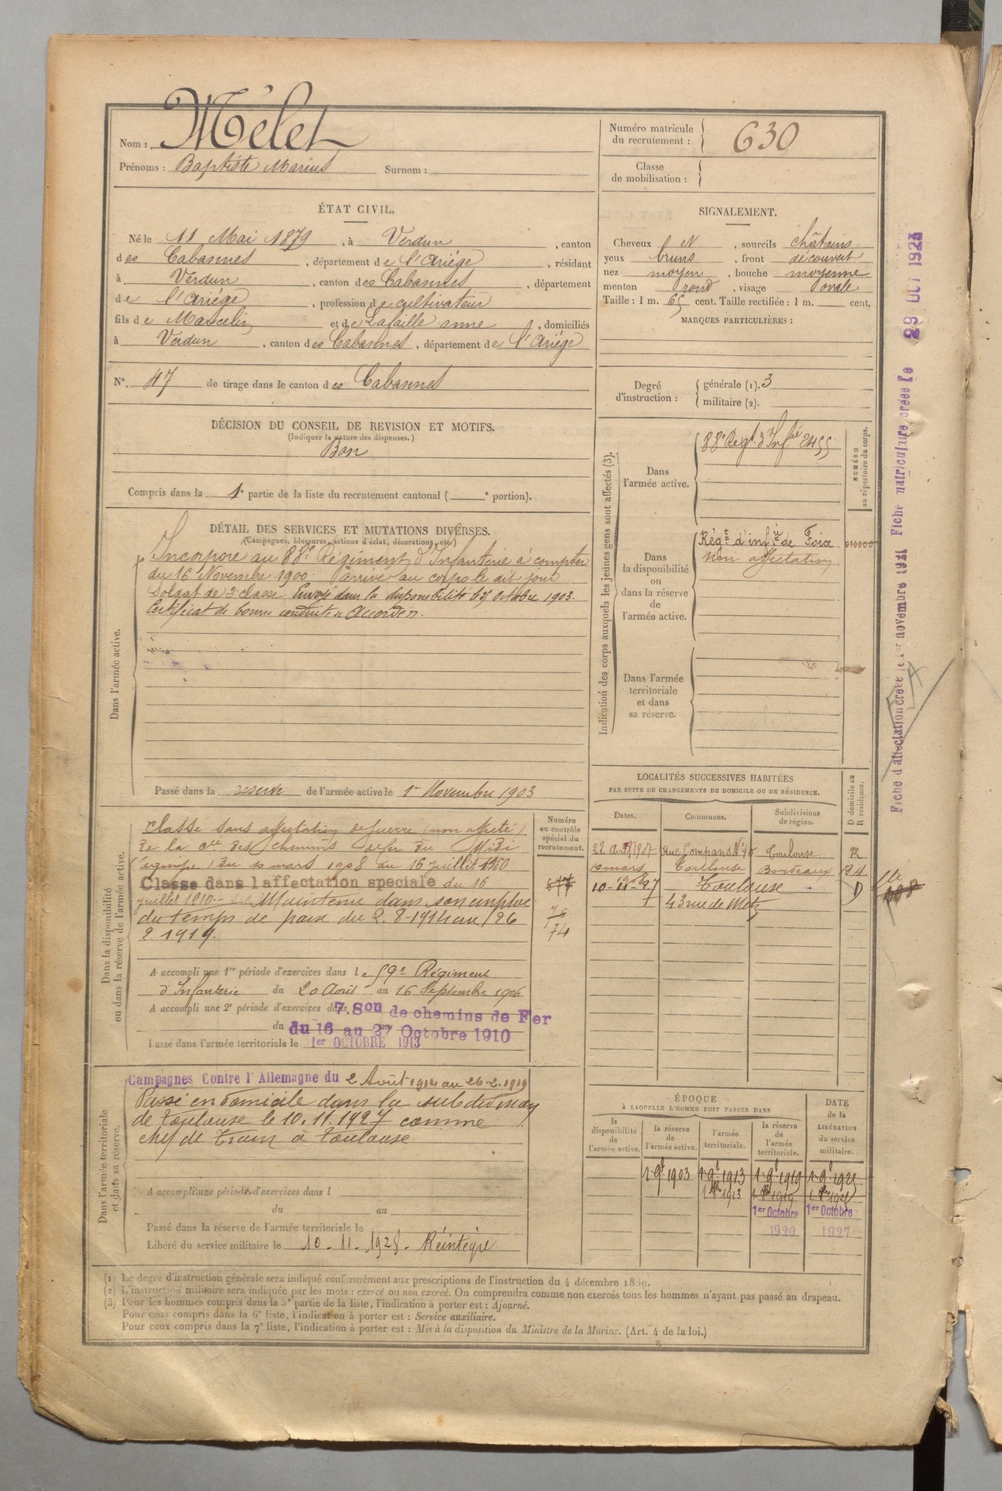 Nom : Mélet
Prénoms : Baptiste Marius Surnom :
Numéro matricule du recrutement : 630
Classe de mobilisation :
ÉTAT CIVIL.
Né le 11 Mai 1879, à Verdun, canton
des Cabannes, département de l'Ariège, résidant
à Verdun, canton des Cabannes, département
de l'Ariège, profession de cultivateur
fils de Marcelin et de Lafaille anne, domiciliés
à Verdun, canton des Cabannes, département de l'Ariège
N° 47 de tirage dans le canton des Cabannes
SIGNALEMENT.
Cheveux N, sourcils châtains
yeux bruns, front découvert
nez moyen, bouche moyenne
menton rond, visage ovale
Taille : 1 m. 65 cent. Taille rectifiée : 1 m. cent.
MARQUES PARTICULIÈRES :
Degré d'instruction : générale (1). 3
militaire (2).
DÉCISION DU CONSEIL DE REVISION ET MOTIFS.
(Indiquer la nature des dispenses.)
Bon
Compris dans la 1e partie de la liste du recrutement cantonal ( e portion).
DÉTAIL DES SERVICES ET MUTATIONS DIVERSES.
(Campagnes, blessures, actions d'éclat, décorations, etc.)
Dans l'armée active.
Incorporé au 88e Régiment d'Infanterie à compter
du 16 Novembre 1900. Arrivé au corps le dit jour
Soldat de 2e classe. Envoyé dans la disponibilité le 17 octobre 1903.
Certificat de bonne conduite Accordé.
Passé dans la reserve de l'armée active le 1er Novembre 1903
Indication des corps auxquels les jeunes gens sont affectés (3).
NUMÉRO au répertoire du corps.
Dans l'armée active.
88e Regt d'Infie
Dans la disponibilité ou dans la réserve de l'armée active.
Régt d'infie de Foix
non affectation
Dans l'armée territoriale et dans sa réserve.
Dans la disponibilité ou dans la réserve de l'armée active.
Classé sans affectation de guerre (non affecté)
de la Cie des Chemins de fer du Midi
du 10 mars 1908 au 16 juillet 1910
Classé dans l'affectation spéciale du 16
juillet 1910. Maintenu dans son emploi
du temps de paix du 2-8-1914 au 26
2 1919.
Numéro au contrôle spécial du recrutement.
A accompli une 1re période d'exercices dans le 59e Régiment
d'Infanterie du 20 Août au 16 Septembre 1906
A accompli une 2e période d'exercices dans 7 Son de chemins de Fer
du du 16 au 27 Octobre 1910
Passé dans l'armée territoriale le 1er OCTOBRE 1913
LOCALITÉS SUCCESSIVES HABITÉES
PAR SUITE DE CHANGEMENTS DE DOMICILE OU DE RÉSIDENCE.
Dates. Communes. Subdivisions de région. D domicile ou R résidence.
Rue Compans Toulouse R
10 mars Toulouse Bordeaux
Toulouse D
43 rue de Metz
Dans l'armée territoriale et dans sa réserve.
Campagnes Contre l'Allemagne du 2 Août 1914 au 26-2-1919
Passé en domicile dans la subdivision
de Toulouse le 10.11.1927 comme
chef de Train à Toulouse
A accompli une période d'exercices dans l
du au
Passé dans la réserve de l'armée territoriale le
Libéré du service militaire le 10-11-1928. Réintégré
ÉPOQUE
À LAQUELLE L'HOMME DOIT PASSER DANS
la disponibilité de l'armée active. la réserve de l'armée active. l'armée territoriale. la réserve de l'armée territoriale. DATE de la LIBÉRATION du service militaire.
1er Octobre 1920
1er Octobre 1927
(1) Le degré d'instruction générale sera indiqué conformément aux prescriptions de l'instruction du 4 décembre 1889.
(2) L'instruction militaire sera indiquée par les mots : exercé ou non exercé. On comprendra comme non exercés tous les hommes n'ayant pas passé au drapeau.
(3) Pour les hommes compris dans la 5e partie de la liste, l'indication à porter est : Ajourné.
Pour ceux compris dans la 6e liste, l'indication à porter est : Service auxiliaire.
Pour ceux compris dans la 7e liste, l'indication à porter est : Mis à la disposition du Ministre de la Marine. (Art. 4 de la loi.)
Fiche d'affectation créée le 1er novembre 1921 Fiche matriculaire créée le 29 OCT 1923